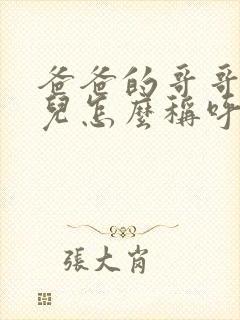 爸爸的哥哥
兒怎麼稱呼
張大肖